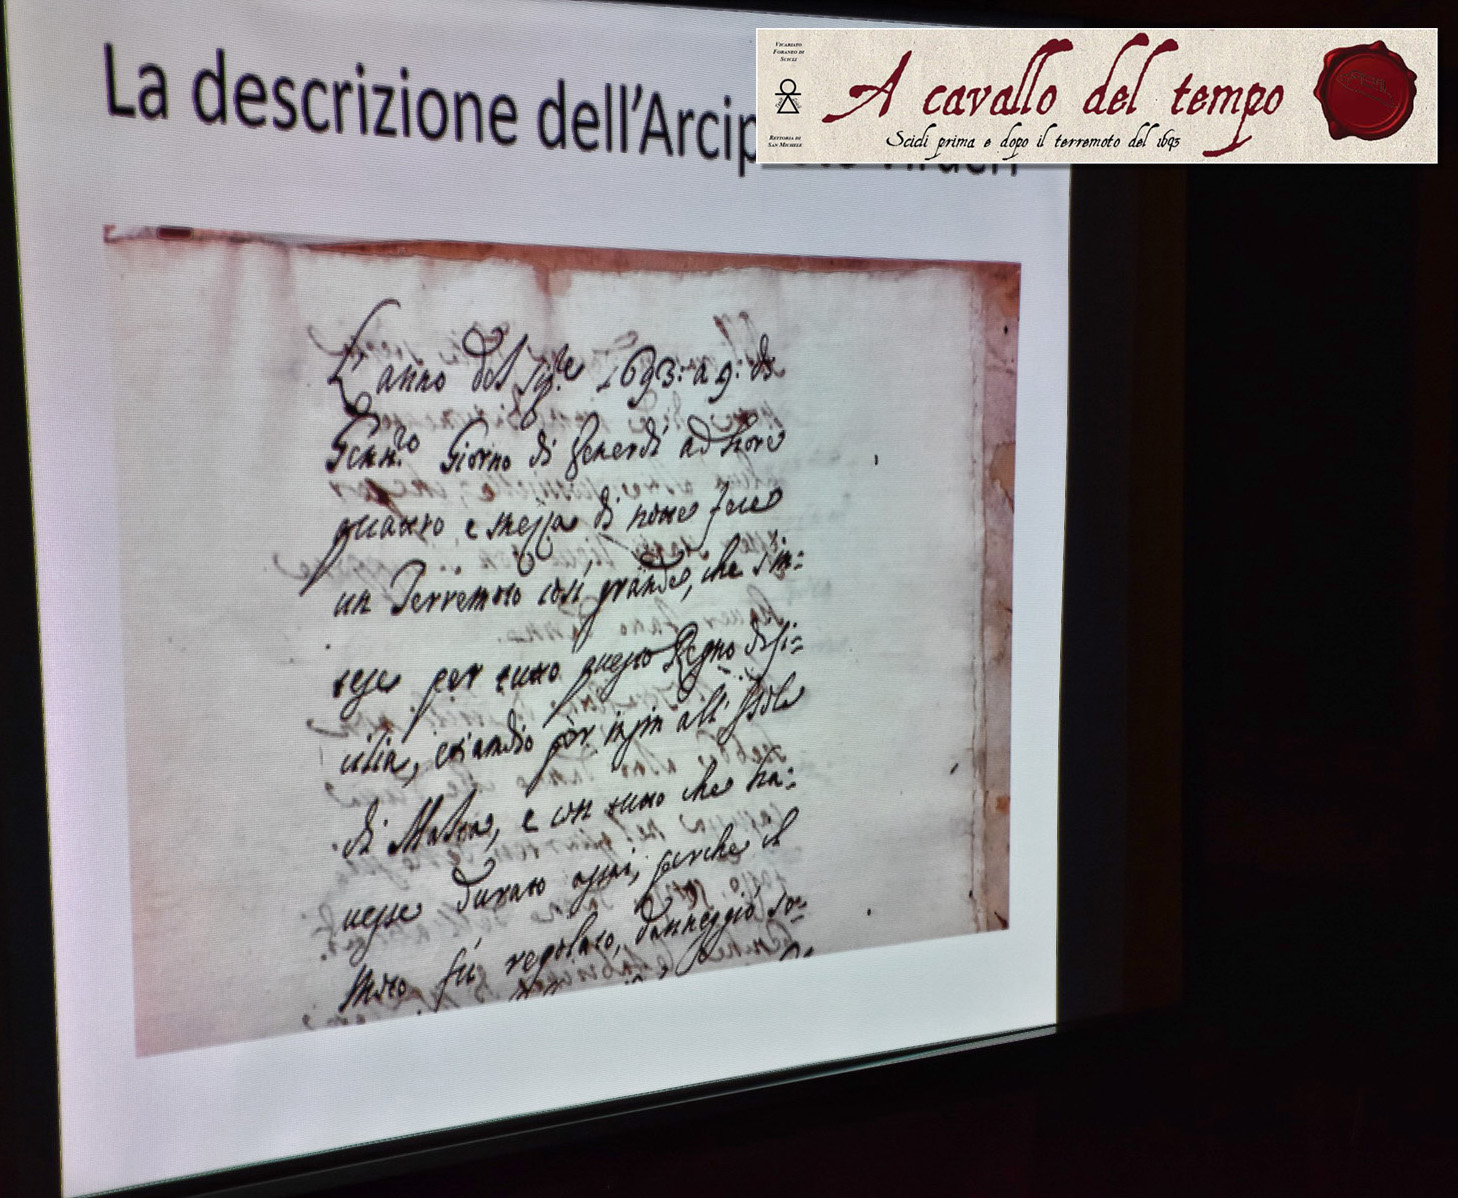 La descrizione dell'Arcip
Vicariato
Foraneo di
Scicli
Rettoria di
San Michele
A cavallo del tempo
Scicli prima e dopo il terremoto del 1693
L'anno del Sig.re 1693: a 9: di
Genn.ro Giorno di Venerdì ad hore
quattro e mezza di notte fece
un Terremoto così grande, che s'in=
tese per tutto questo Regno di Si=
cilia, etiandio per infin all'Isola
di Malta, e con tutto che ha:
vesse durato assai, perche il
moto fù regolato, danneggiò so=